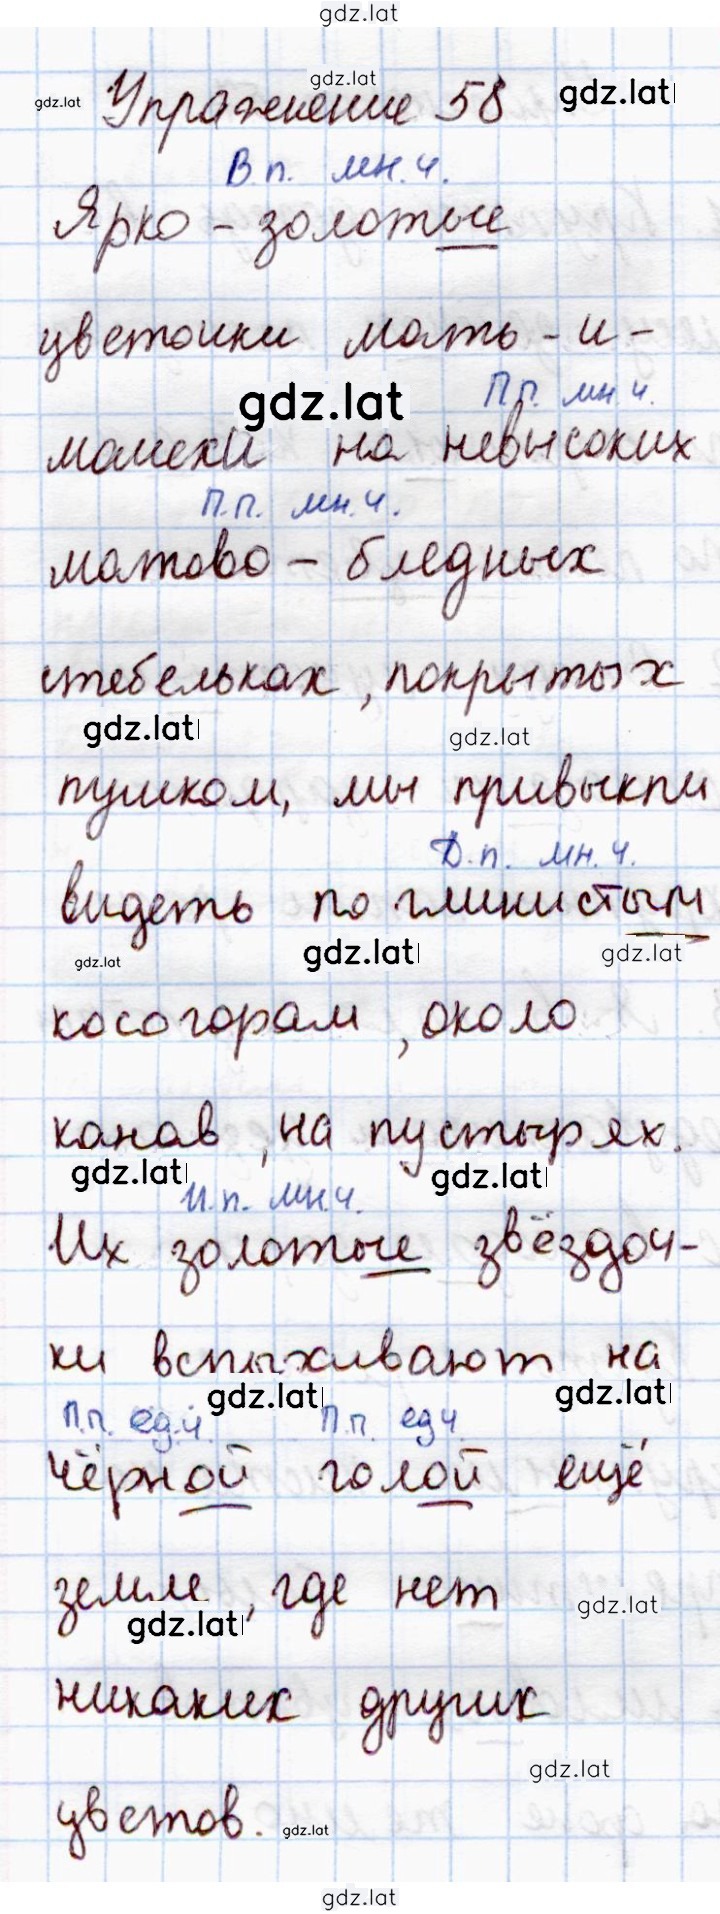 gdz.lat
gdz.lat
gdz.lat Упражнение 58 gdz.lat
В.п. мн.ч.
Ярко-золотые
цветочки мать-и-
gdz.lat П.п. мн.ч.
мачехи на невысоких
П.п. мн.ч.
матово-бледных
стебельках, покрытых
gdz.lat gdz.lat
пушком, мы привыкли
Д.п. мн.ч.
видеть по глинистым
gdz.lat gdz.lat gdz.lat
косогорам, около
канав, на пустырях.
gdz.lat gdz.lat
И.п. мн.ч.
Их золотые звёздоч-
ки вспыхивают на
gdz.lat gdz.lat
П.п. ед.ч. П.п. ед.ч.
чёрной голой ещё
земле, где нет
gdz.lat gdz.lat
никаких других
gdz.lat
цветов. gdz.lat
gdz.lat